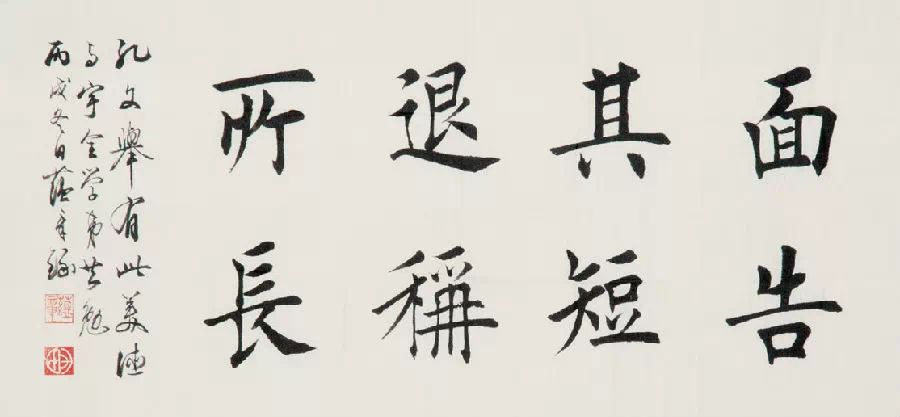 面告
其短
退稱
所長
孔文舉有此美德
与宇全学弟共勉
丙戌冬日蔭亭録